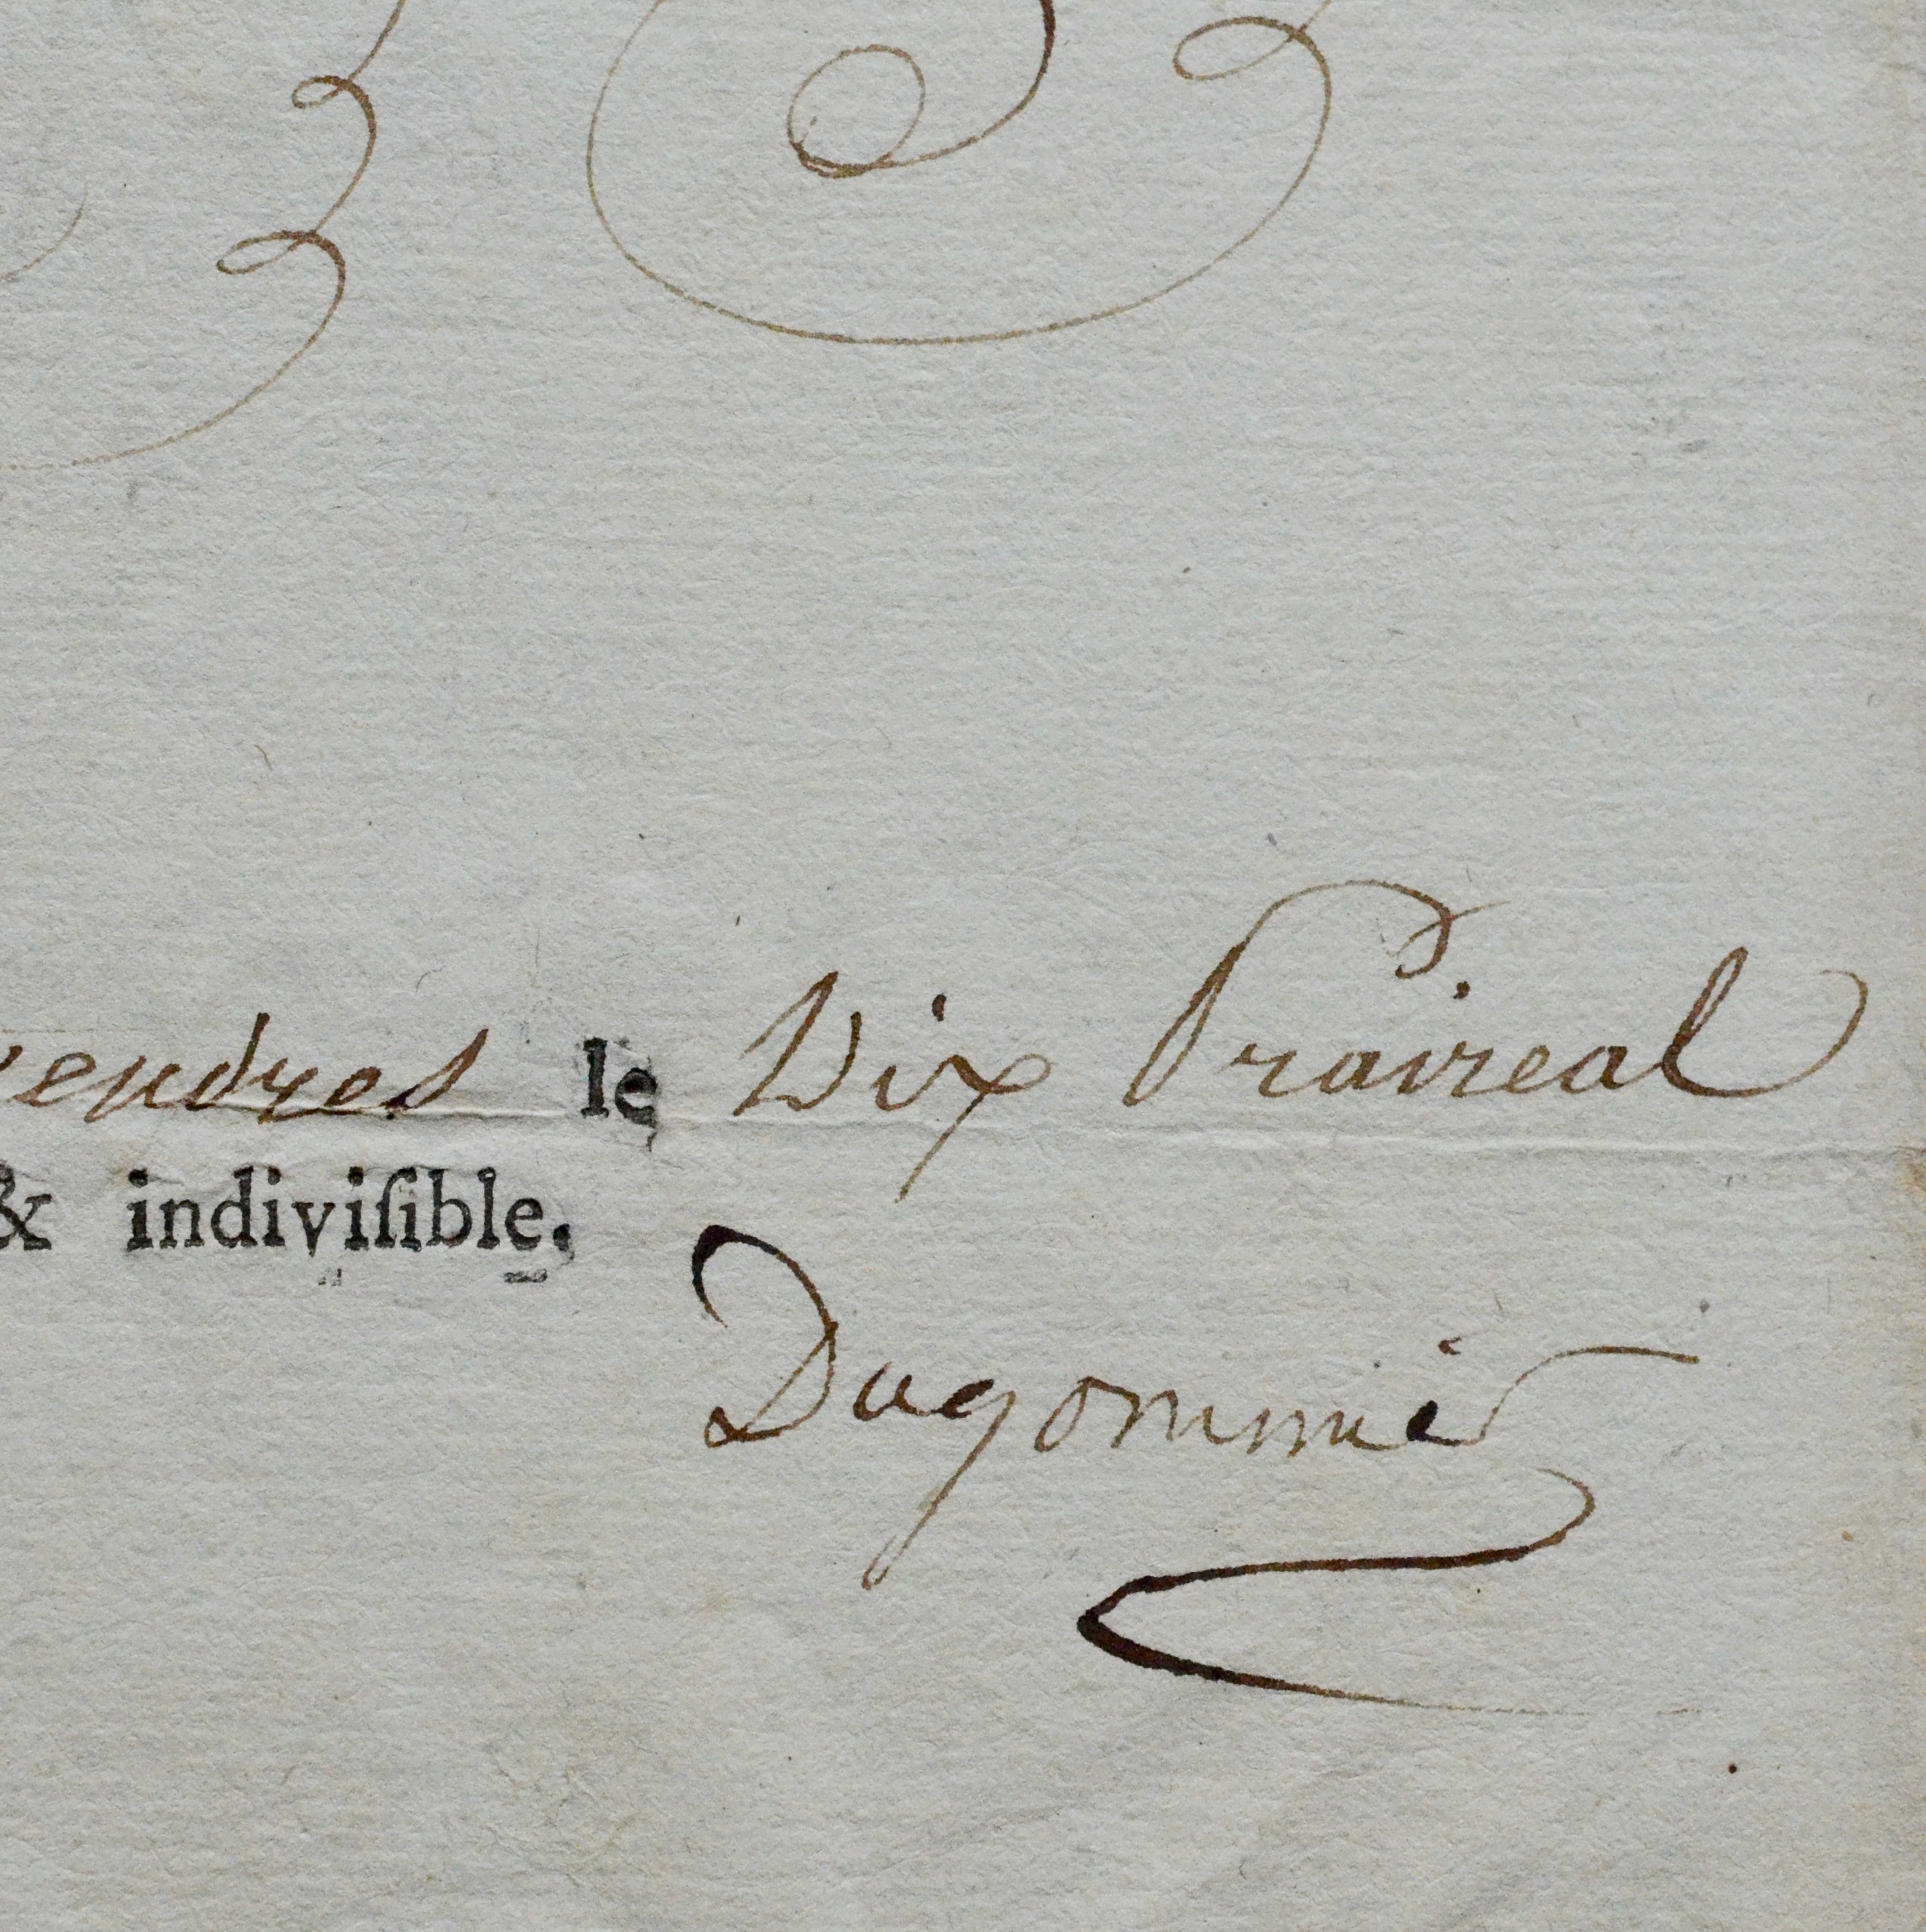 vendres le Dix Praireal
& indiviſible.
Dugommier